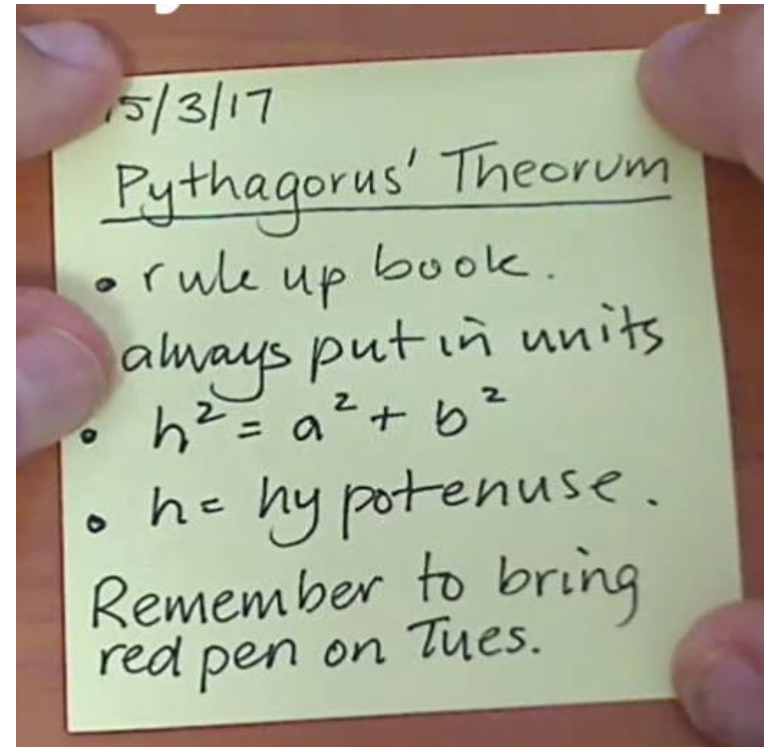 15/3/17
Pythagorus' Theorum
• rule up book.
always put in units
• h² = a² + b²
• h = hypotenuse.
Remember to bring
red pen on Tues.